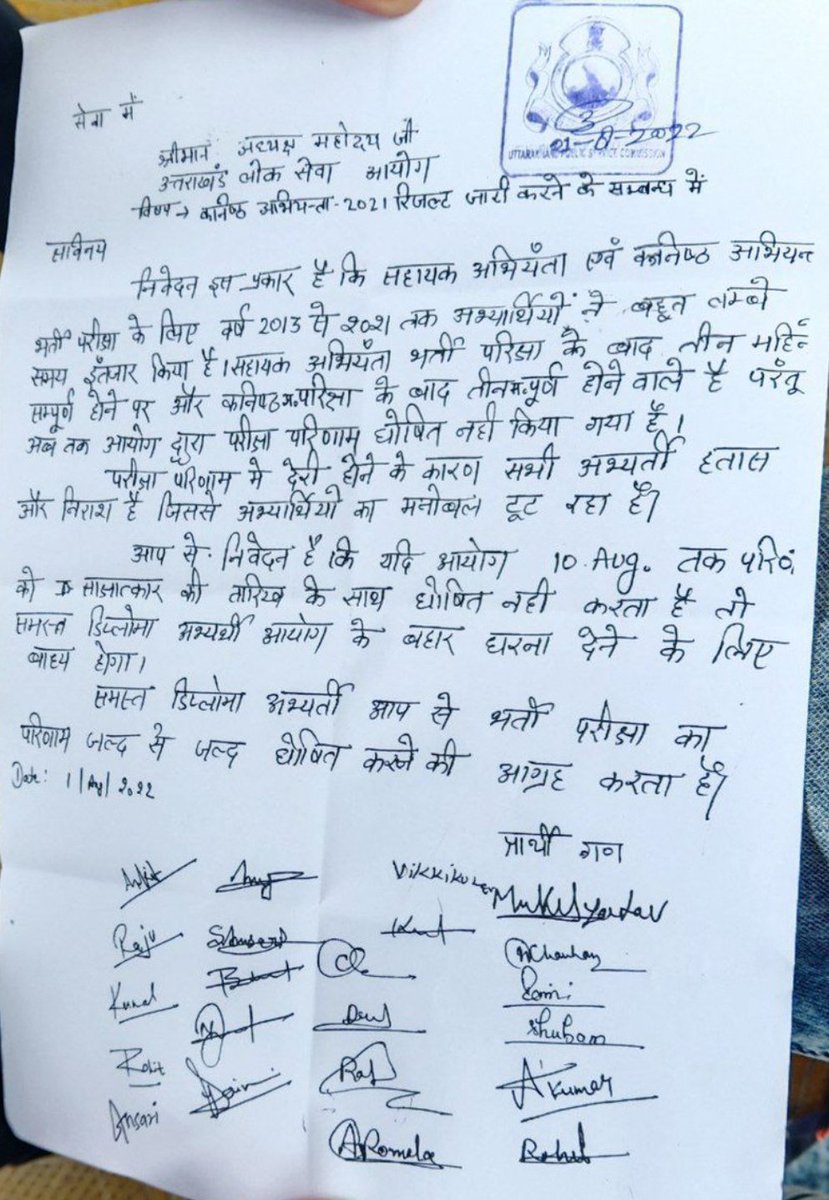 सेवा में
श्रीमान अध्यक्ष महोदय जी
उत्तराखंड लोक सेवा आयोग
विषय → कनिष्ठ अभियन्ता-2021 रिजल्ट जारी करने के सम्बन्ध में
01-8-2022
UTTARAKHAND PUBLIC SERVICE COMMISSION
सविनय
निवेदन इस प्रकार है कि सहायक अभियंता एवं कनिष्ठ अभियन्
भर्ती परीक्षा के लिए वर्ष 2013 से 2021 तक अभ्यार्थियों ने बहुत लम्बे
समय इंतजार किया है। सहायक अभियंता भर्ती परिक्षा के बाद तीन महिने
सम्पूर्ण होने पर और कनिष्ठ अ. परिक्षा के बाद तीन म. पूर्ण होने वाले है परंतू
अब तक आयोग द्वारा परीक्षा परिणाम घोषित नही किया गया है।
परीक्षा परिणाम मे देरी होने के कारण सभी अभ्यर्ती हतास
और निराश है जिससे अभ्यार्थियो का मनोबल टूट रहा है।
आप से निवेदन है कि यदि आयोग 10 Aug. तक परि०
को साक्षात्कार की तारिख के साथ घोषित नही करता है तो
समस्त डिप्लोमा अभ्यर्थी आयोग के बहार धरना देने के लिए
बाध्य होगा।
समस्त डिप्लोमा अभ्यर्ती आप से भर्ती परीक्षा का
परिणाम जल्द से जल्द घोषित करने की आग्रह करता है।
Date: 1/Aug/2022
प्रार्थी गण
Ankit Vikkikumar Mukul Yadav
Raju Chauhan
Kunal
Shubam
Rohit A'kumar
Ansari Saini Raj
Rohit